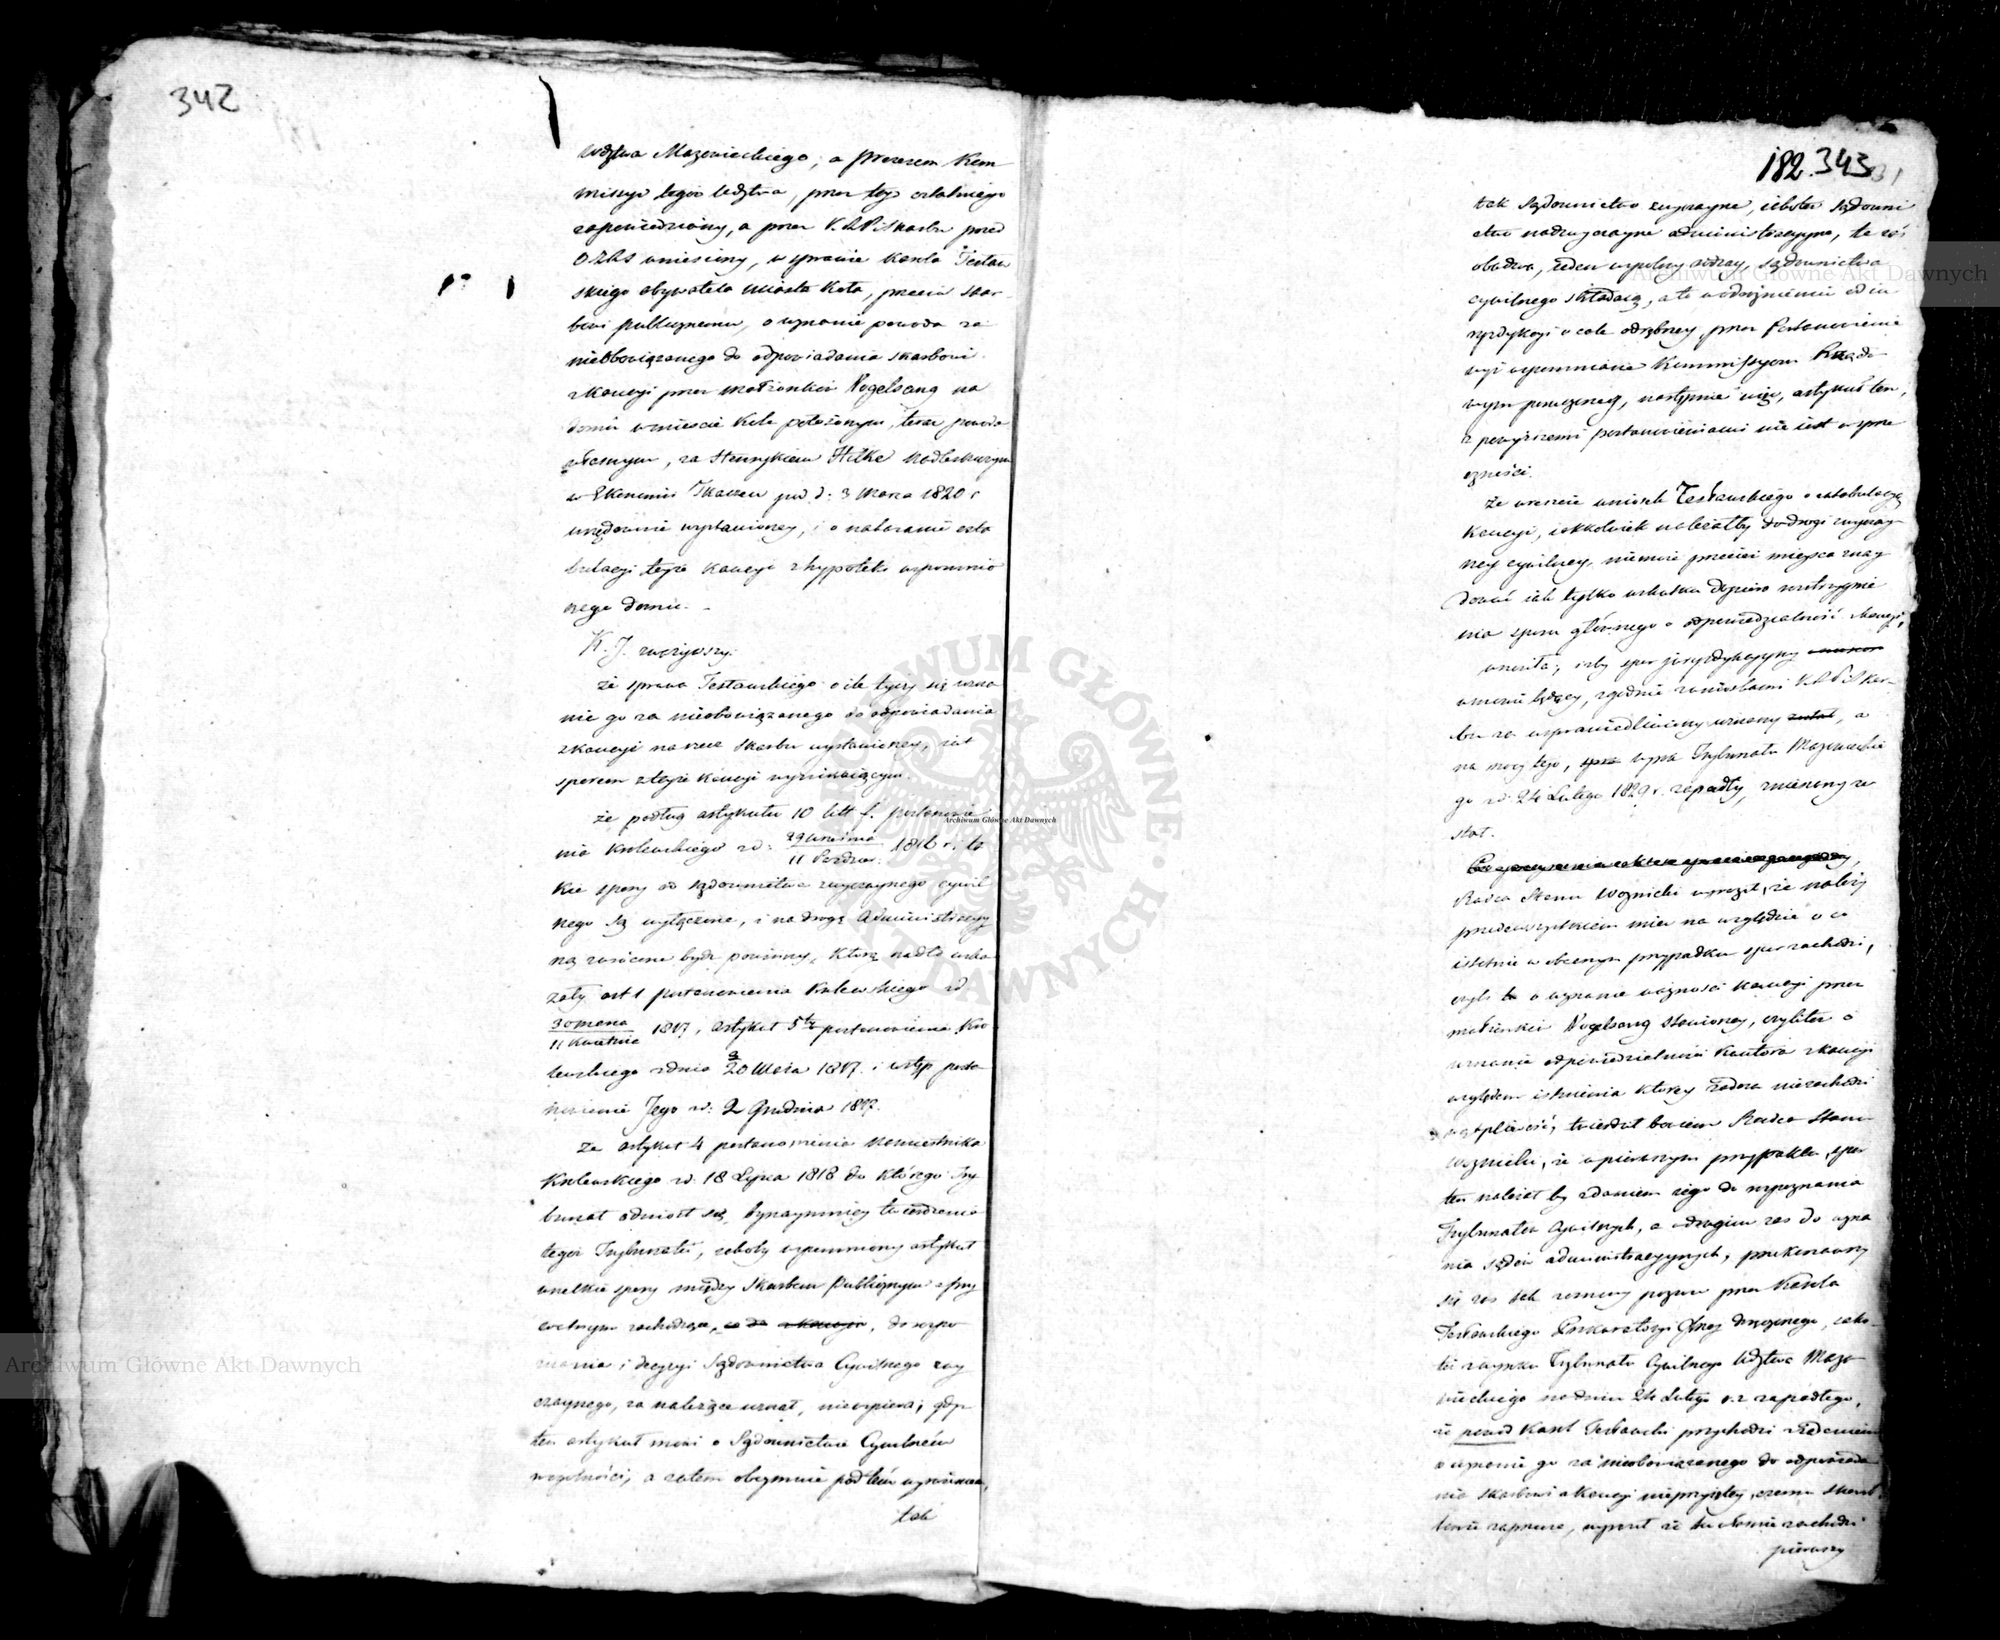 342
wdztwa Mazowieckiego, a prezesem Kom
missyi tegoż wdztwa, przez tegoż ostatniego
zapowiedziany, a przez K.R.P. i Skarbu przed
OZRS wniesiony, w sprawie Karola Testaw
skiego obywatela miasta Koła, przeciw skar-
bowi publicznemu, o uznanie powoda za
nieobowiązanego do odpowiadania skarbowi
z kaucyi przez małżonków Vogelsang na
domu w mieście Kole położonym, teraz powoda
własnym, za Henrykiem Hilke Nadleśniczym
w Ekonomii pod d: 3 Marca 1820 r
urzędownie wystawioney, i o nakazanie exta
bulacyi teyże kaucyi z hypoteki wspomnio
nego domu. -
K. J. zważywszy:
że sprawa Testawskiego o ile tyczy się uzna
nie go za nieobowiązanego do odpowiadania
z kaucyi na rzecz skarbu wystawioney, jest
sporem z teyże kaucyi wynikaiącym.
że podług artykułu 10 litt f. postanowie
nia Królewskiego z d: 29 września / 11 Paździer: 1816 r. ta
kie spory od sądownictwa zwyczaynego cywil
nego są wyłączone, i na drogę administracyy
ną zwrócone bydź powinny, którą nadto wska
zały art 1 postanowienia Królewskiego z d
30 marca / 11 kwietnia 1817, artykuł 5ty postanowienia Kró
lewskiego z dnia 8/20 Maia 1817. i wstęp posta
nowienia Jego z d: 2 Grudnia 1817.
Że artykuł 4 postanowienia Namiestnika
Królewskiego z d. 18 Lipca 1818 do którego Try
bunał odniósł się, bynaymniey twierdzenia
tegoż Trybunału, iakoby wspomniony artykuł
wszelkie spory między Skarbem Publicznym a pry
watnym zachodzące, co do z kaucyi, do rozpo
znania i decyzyi Sądownictwa Cywilnego zwy
czaynego, za należące uznał, niewspiera; gdyż
ten artykuł mówi o Sądownictwie Cywilnem
w ogólności, a zatem obeymuie pod tem wyrażeniem,
tak
182. 343
tak sądownictwo zwyczayne, iako też sądowni
ctwo nadzwyczayne administracyyne, te zaś
obadwa, ieden wspólny rodzay sądownictwa
cywilnego składaią, a to w odróżnieniu od iu
rysdykcyi w cale odrębney, przez Postanowienie
wyż wspomnione Kommissyom Rządo
wym poruczoney, następnie więc, artykuł ten,
z powyższemi postanowieniami nie iest w sprze
czności.
Że wreszcie wniosek Testawskiego o extabulacyą
kaucyi, iakkolwiek należałby do drogi zwyczay
ney cywilney, niemoże przecież mieysca znay
dować iak tylko w skutku dopiero roztrzygnie
nia sporu głównego o odpowiedzialność z kaucyi,
wnosiła; iżby spor jurysdykcyyny
w mowie będący, zgodnie z wnioskami K.R.P. i Skar-
bu za usprawiedliwiony uznany został, a
na mocy tego, wyrok Trybunału Mazowieckie
go z d. 24 Lutego 1829 r. zapadły, zniesiony zo
stał.
Radca Stanu Woźnicki wyraził, że należy
przedewszystkiem mieć na względzie o co
istotnie w obecnym przypadku spor zachodzi,
czyli to o uznanie ważności kaucyi przez
małżonków Vogelsang stawioney, czyli też o
uznanie odpowiedzialności Kantora z kaucyi
względem istnienia którey żadna niezachodzi
wątpliwość, twierdził bowiem Radca Stanu
Woźnicki, że w pierwszym przypadku, spor
ten należał by zdaniem iego do rozpoznania
Trybunałów Cywilnych, a w drugim zaś do uzna
nia sądów administracyynych; przekonawszy
się zaś tak z osnowy pozwu przez Karola
Testawskiego Prokuratoryi Jney doręczonego, iako-
też z wyroku Trybunału Cywilnego Wdztwa Mazo
wieckiego na dniu 24 Lutego r.z. zapadłego,
że powód Karol Testawski przychodzi z żądaniem
o uznanie go za nieobowiązanego do odpowiada
nia skarbowi z kaucyi nieprzyiętey, czemu skarb
zaprzecza, wyraził że tu w tem zachodzi
pierwszy
Archiwum Główne Akt Dawnych